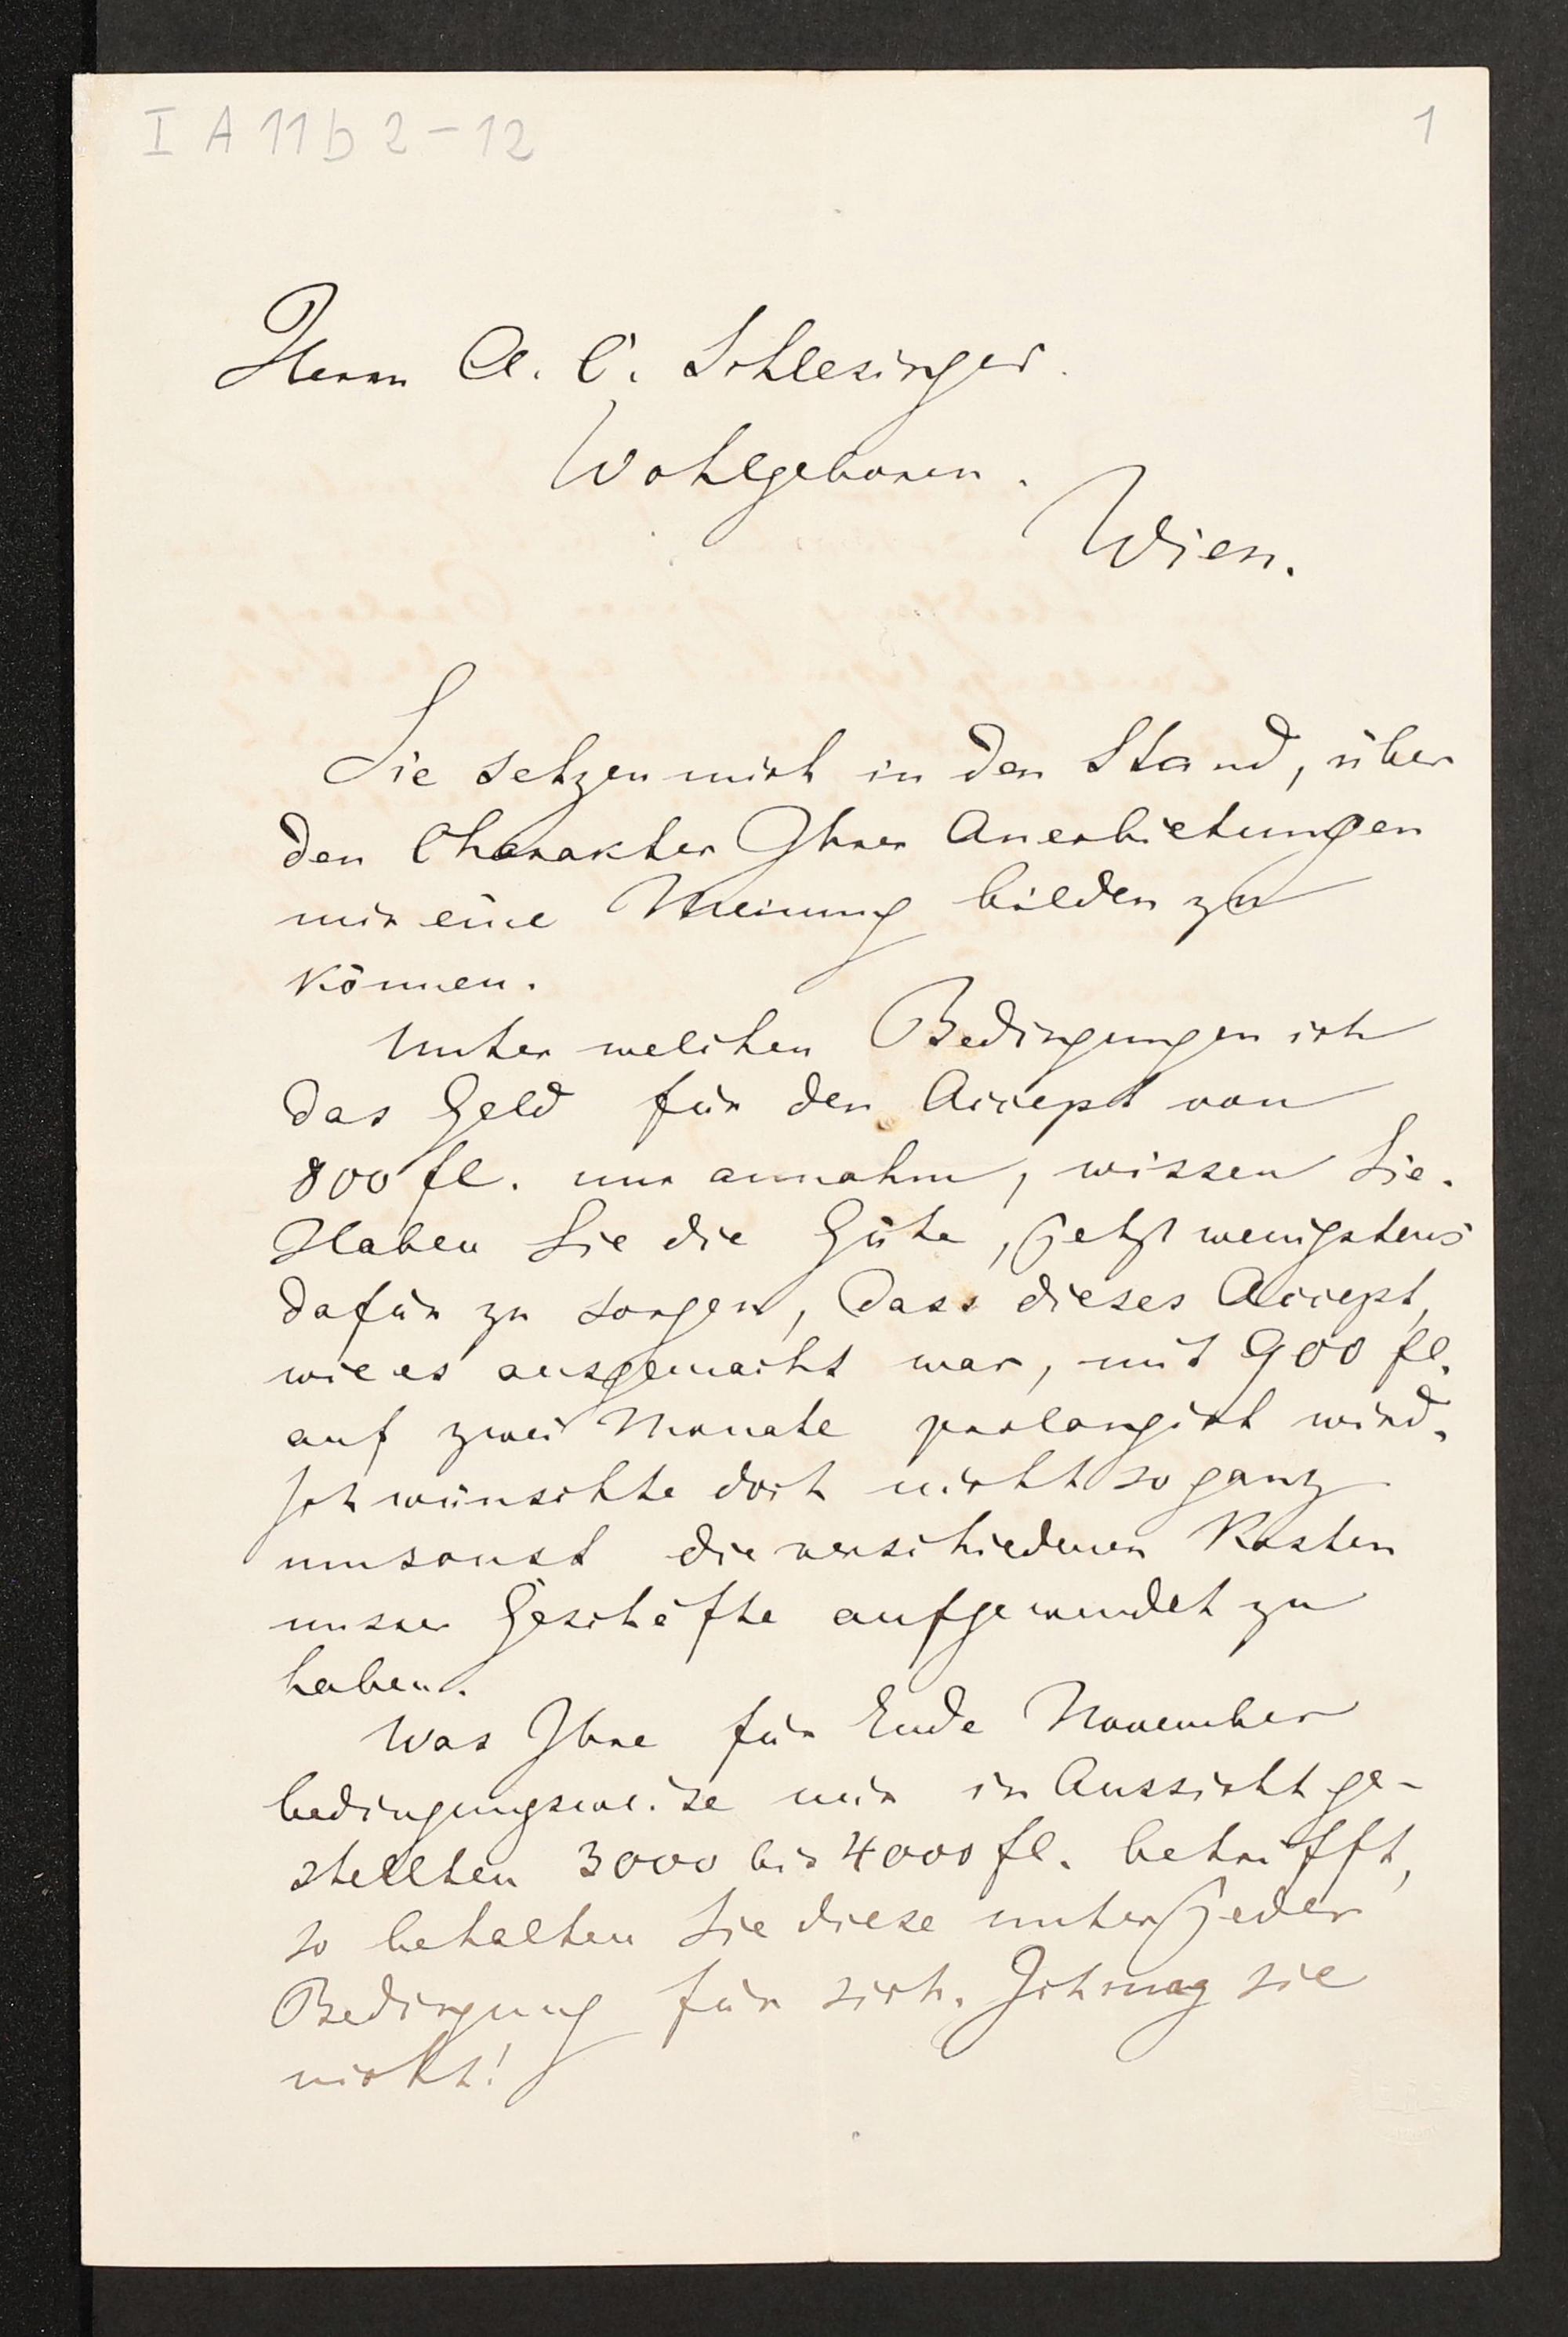 I A 11 b 2 - 12
1
Herrn A. C. Schlesinger.
Wohlgeboren.
Wien.
Sie setzen mich in den Stand, über
den Charakter Ihrer Anerbietungen
mir eine Meinung bilden zu
können.
Unter welchen Bedingungen ich
das Geld für den Accept von
800 fl. nur annahm, wissen Sie.
Haben Sie die Güte, jetzt wenigstens
dafür zu sorgen, dass dieses Accept,
wie es ausgemacht war, mit 900 fl.
auf zwei Monate prolongirt wird.
Ich wünschte doch nicht so ganz
umsonst die verschiedenen Kosten
unsrer Geschäfte aufgewendet zu
haben.
Was Ihre für Ende November
bedingungsweise mir in Aussicht ge-
stellten 3000 bis 4000 fl. betrifft,
so behalten Sie diese unter jeder
Bedingung für sich. Ich mag sie
nicht!